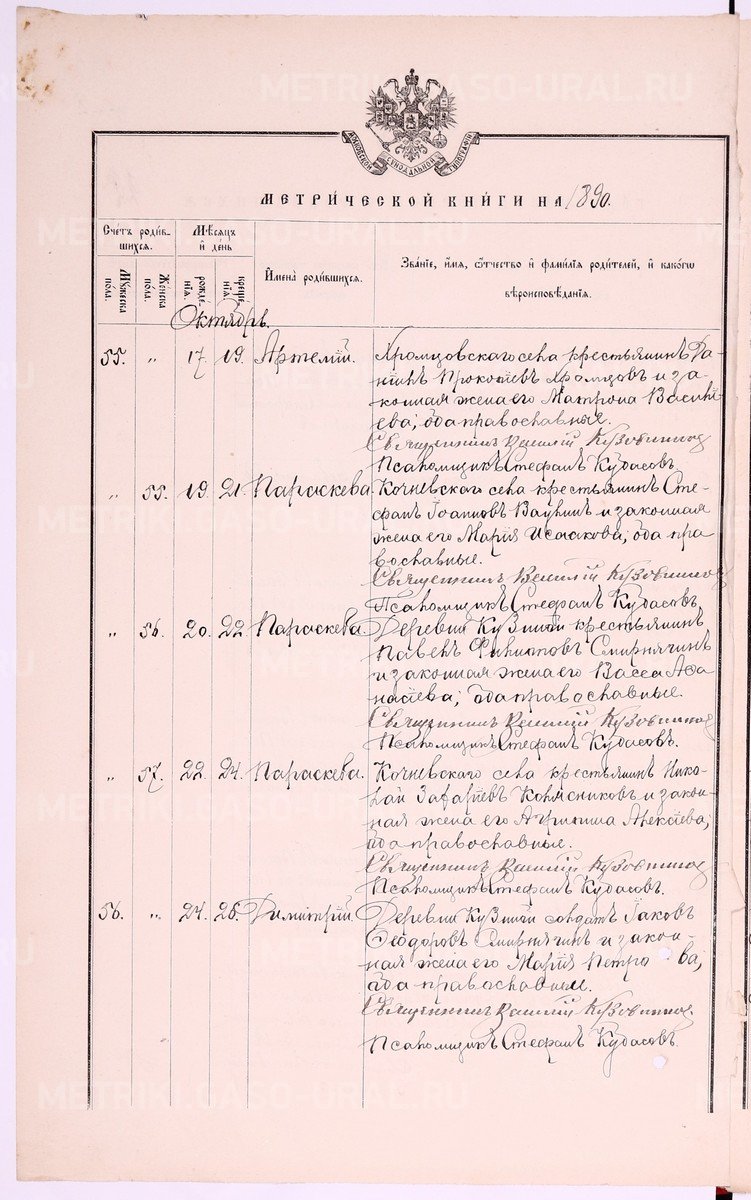 METRIKI.GASO-URAL.RU
МОСКОВСКОЙ СѴНОДАЛЬНОЙ ТИПОГРАФІИ
МЕТРИ́ЧЕСКОЙ КНИ́ГИ НА 1890.
Сче́тъ роди́в-
шихся.
Мѣ́сяцъ
и҆ де́нь
И҆мена̀ роди́вшихся.
Зва́нїе, и҆́мя, ѻ҆́тчество и҆ фами́лїя роди́телей, и҆ како́гѡ
вѣроисповѣ́данїя.
Му́жеска по́ла.
Же́нска по́ла.
рожде́нїя.
креще́нїя.
Октябрь.
55. " 17 19. Артемій. Хромцовскаго села крестьянинъ Да-
ніилъ Прокопіевъ Хромцовъ и за-
конная жена его Матрона Василі-
ева; оба православные.
Священникъ Василій
Псаломщикъ Стефанъ Кудасовъ.
" 55. 19. 21. Параскева. Кочневскаго села крестьянинъ Сте-
фанъ Іоанновъ и законная
жена его Марія Исаакова; оба пра-
вославные.
Священникъ Василій
Псаломщикъ Стефанъ Кудасовъ.
" 56. 20. 22. Параскева. Деревни Кузиной крестьянинъ
Павелъ Филиповъ Смирнягинъ
и законная жена его Васса Аѳа-
насіева; оба православные.
Священникъ Василій
Псаломщикъ Стефанъ Кудасовъ.
" 57. 22. 24. Параскева. Кочневскаго села крестьянинъ Нико-
лай Захаріевъ Колясниковъ и закон-
ная жена его Агрипина Алексіева;
оба православные.
Священникъ Василій
Псаломщикъ Стефанъ Кудасовъ.
56. " 24. 26. Димитрій. Деревни Кузиной солдатъ Іаковъ
Ѳеодоровъ Смирнягинъ и закон-
ная жена его Марія Петрова;
оба православные.
Священникъ Василій
Псаломщикъ Стефанъ Кудасовъ.
METRIKI.GASO-URAL.RU